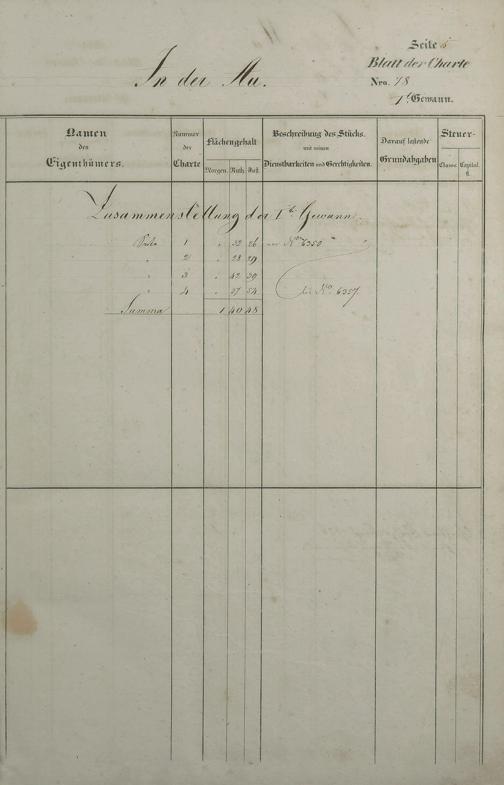 Seite 5
In der Au.
Blatt der Charte
Nro. 78
1te Gewann.
Namen des Eigenthümers.
Nummer der Charte
Flächengehalt
Morgen. Ruth. Fuß.
Beschreibung des Stücks.
mit seinen
Dienstbarkeiten und Gerechtigkeiten.
Darauf haftende
Grundabgaben
Steuer-
Classe. Capital.
fl.
Zusammenstellung der 1te Gewann.
Seite 1 " 32 26 von No 6350
" 2 " 28 29
" 3 " 42 39
" 4 " 37 54 bis No. 6357.
Summa 1 40 48